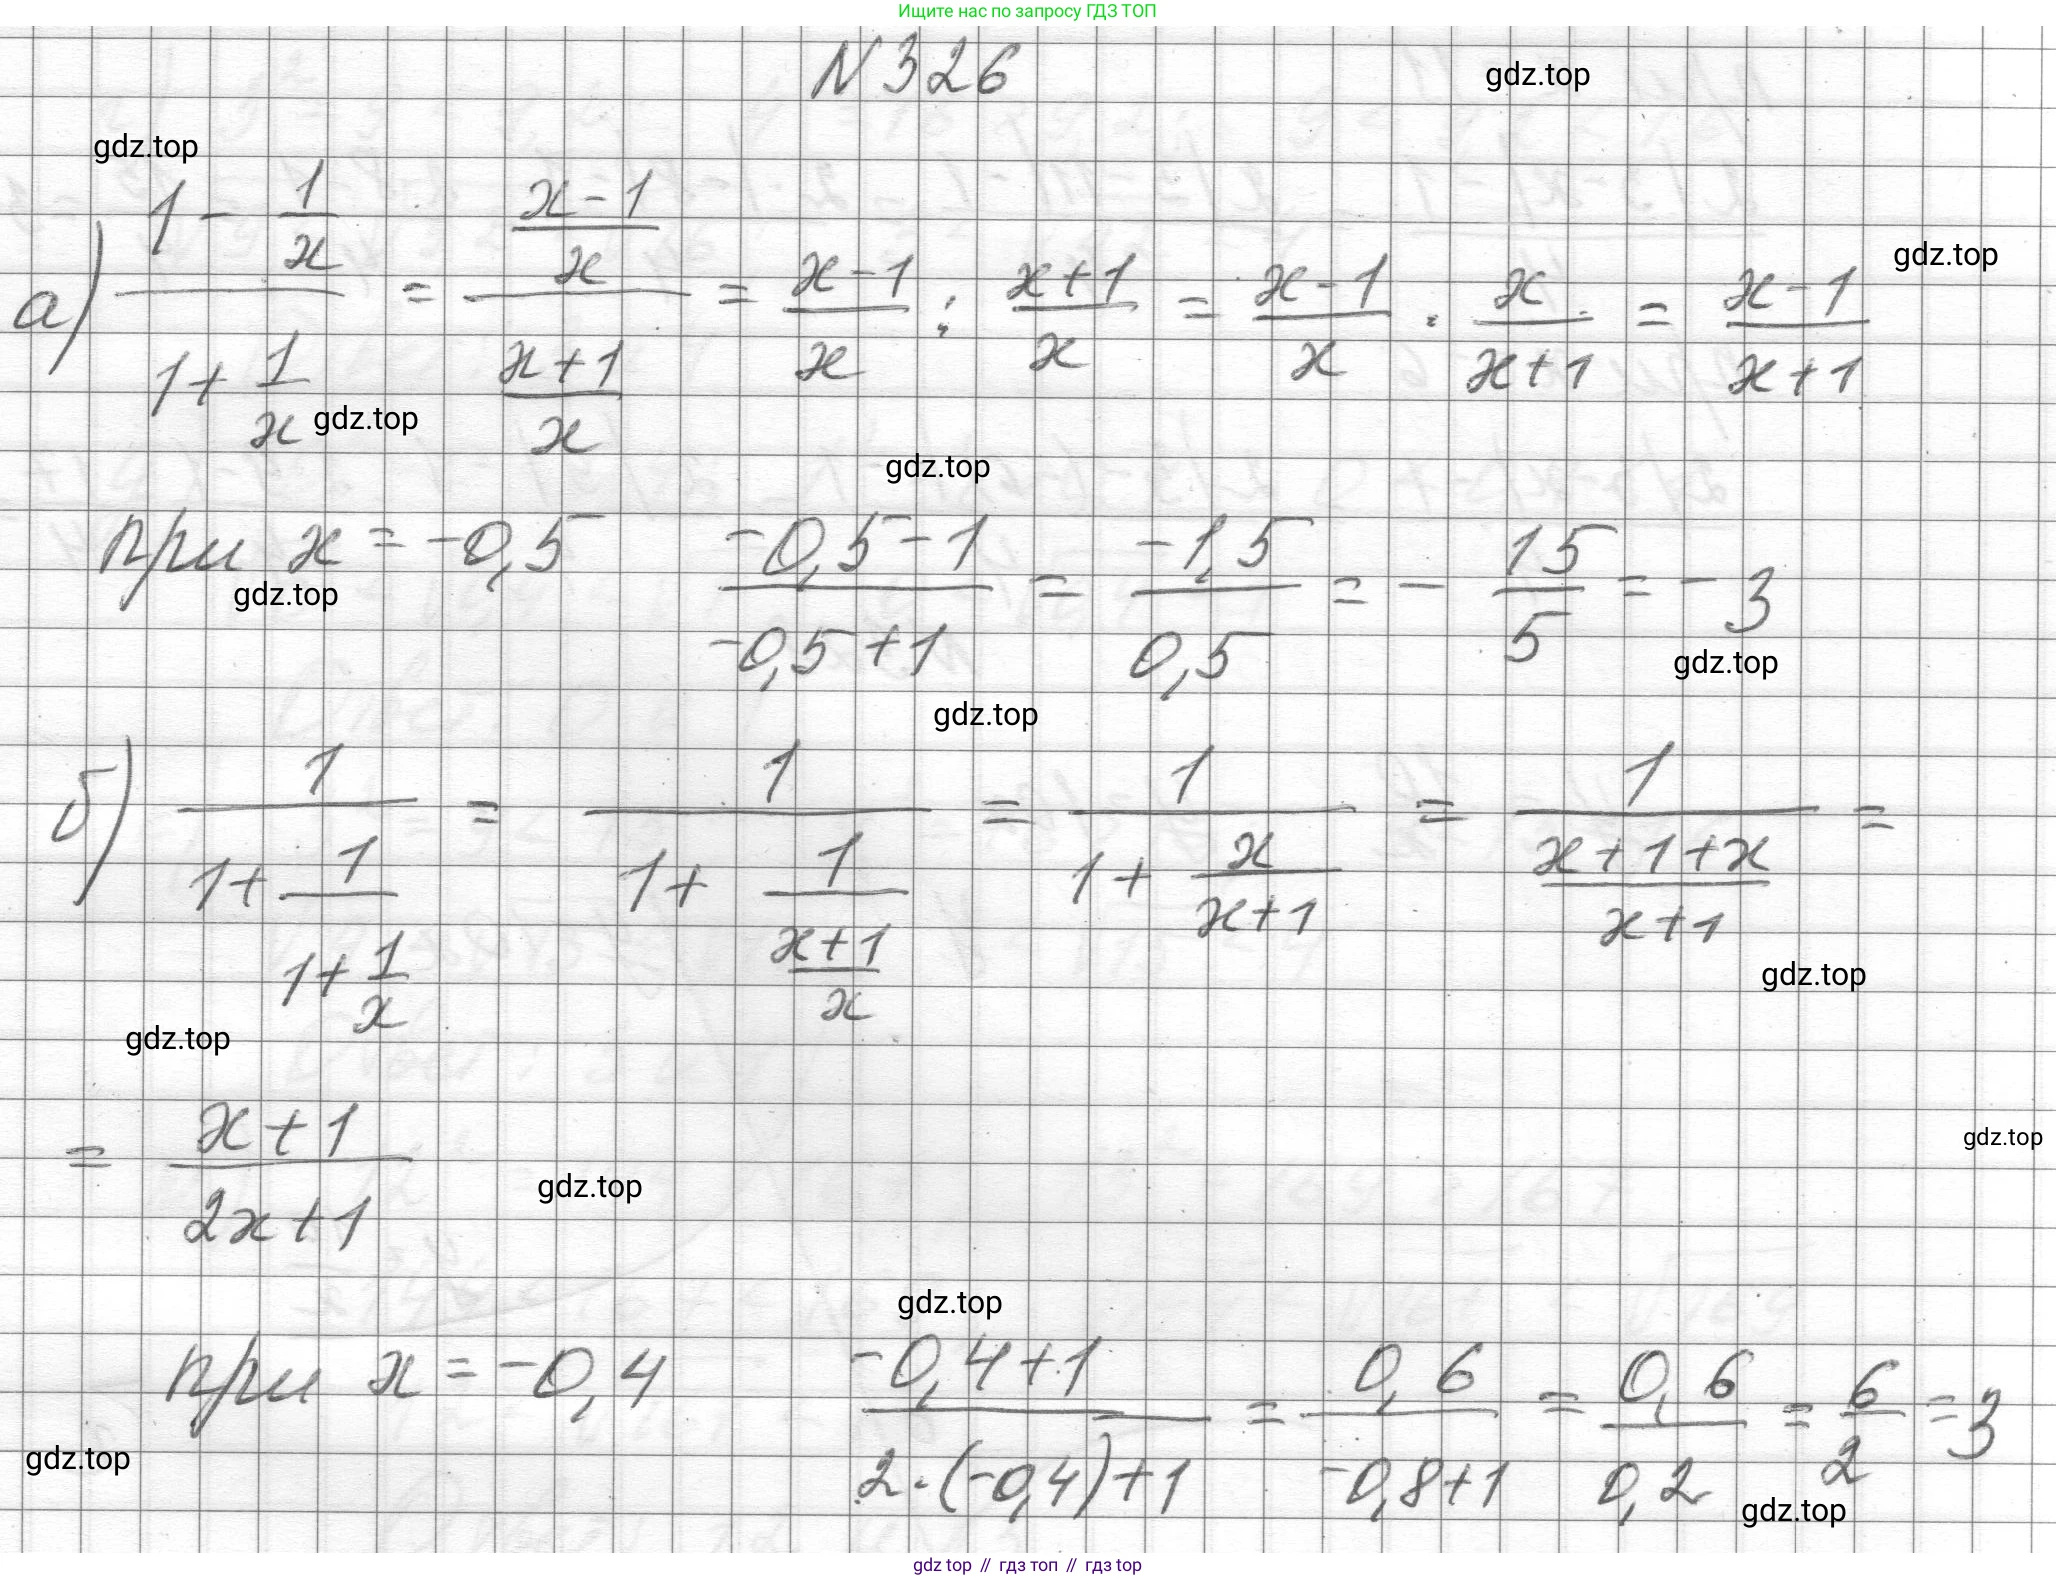 Ищите нас по запросу ГДЗ ТОП
N 326
gdz.top
gdz.top
а) (1 - 1/x)/(1 + 1/x) = ((x-1)/x)/((x+1)/x) = (x-1)/x : (x+1)/x = (x-1)/x · x/(x+1) = (x-1)/(x+1)
gdz.top
gdz.top
gdz.top
при x = -0,5 (-0,5-1)/(-0,5+1) = (-1,5)/(0,5) = - 15/5 = -3
gdz.top
gdz.top
gdz.top
б) 1/(1 + 1/(1 + 1/x)) = 1/(1 + 1/((x+1)/x)) = 1/(1 + x/(x+1)) = 1/((x+1+x)/(x+1)) =
gdz.top
gdz.top
= (x+1)/(2x+1)
gdz.top
gdz.top
gdz.top
при x = -0,4 (-0,4+1)/(2·(-0,4)+1) = 0,6/(-0,8+1) = 0,6/0,2 = 6/2 = 3
gdz.top
gdz.top
gdz top // гдз топ // гдз top